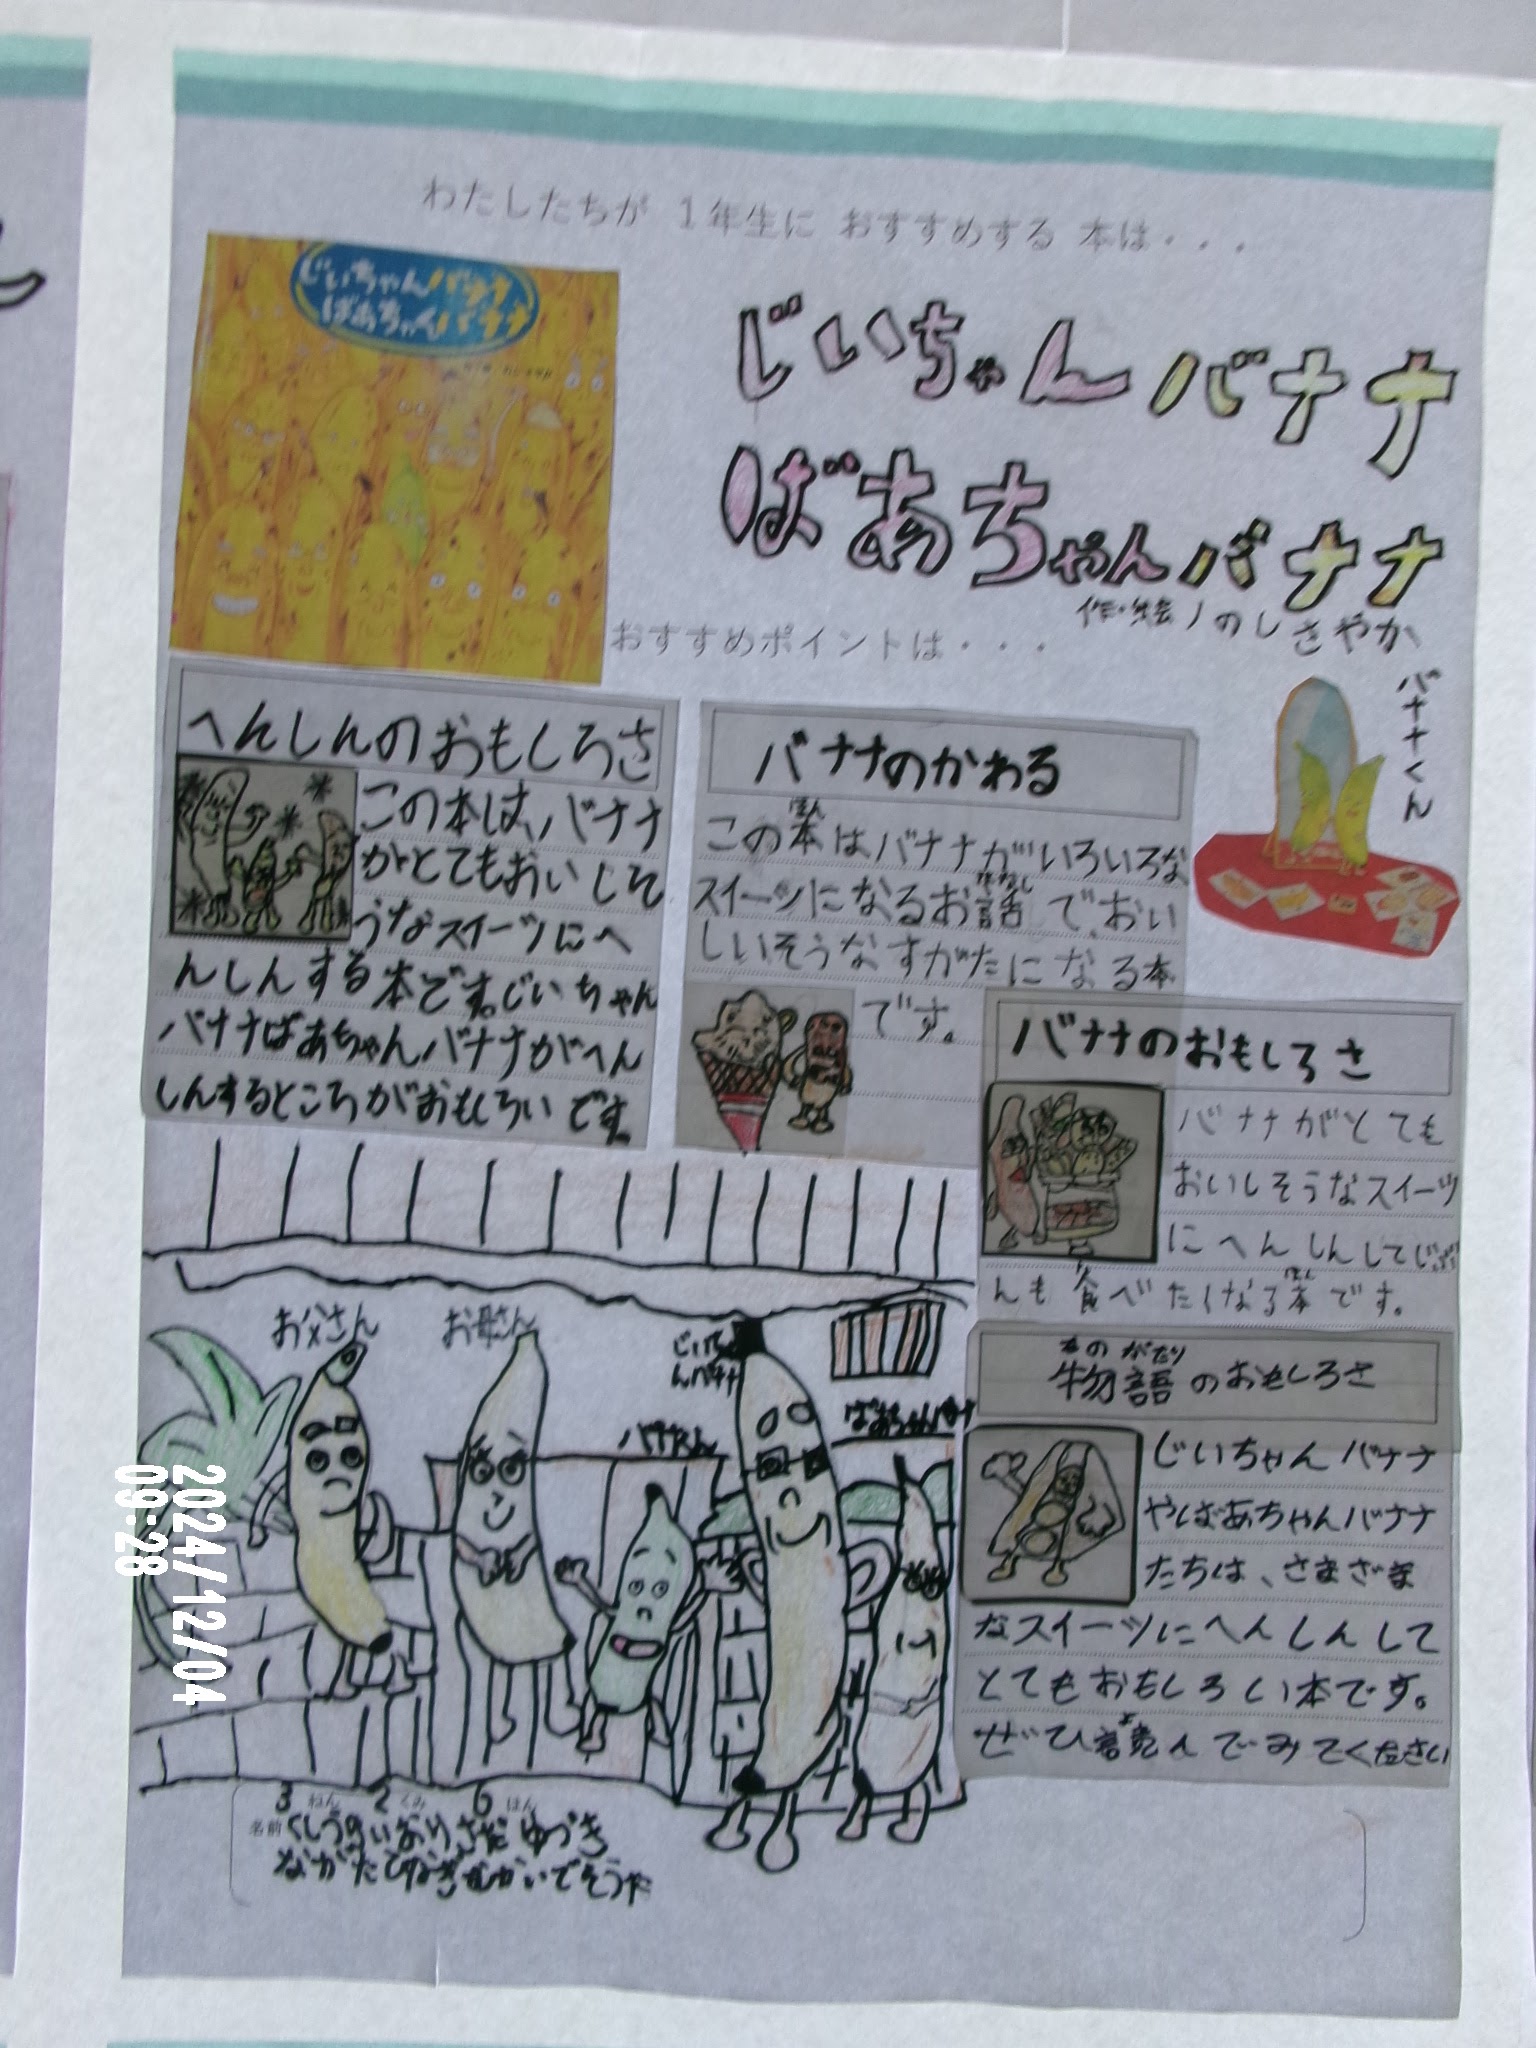 わたしたちが 1年生に おすすめする 本は・・・
じいちゃんバナナ
ばあちゃんバナナ
じいちゃんバナナ
ばあちゃんバナナ
作・絵 ﾉのしさやか
おすすめポイントは・・・
バナナくん
へんしんのおもしろさ
この本は、バナナ
がとてもおいしそ
うなスイーツにへ
んしんする本です。じいちゃん
バナナばあちゃんバナナがへん
しんするところがおもしろいです。
バナナのかわる
ほん
この本はバナナがいろいろな
はなし
スイーツになるお話で、おい
しいそうなすがたになる本
です。
バナナのおもしろさ
バナナがとても
おいしそうなスイーツ
にへんしんしてじぶ
んも食べたくなる本です。
ほん
もの がたり
物語のおもしろさ
じいちゃんバナナ
やばあちゃんバナナ
たちは、さまざま
なスイーツにへんしんして
とてもおもしろい本です。
よ
ぜひ読んでみてください
お父さん
お母さん
じいちゃ
んバナナ
ばあちゃんバナナ
3 ねん 2 くみ 6 はん
名前
2024/12/04
09:28